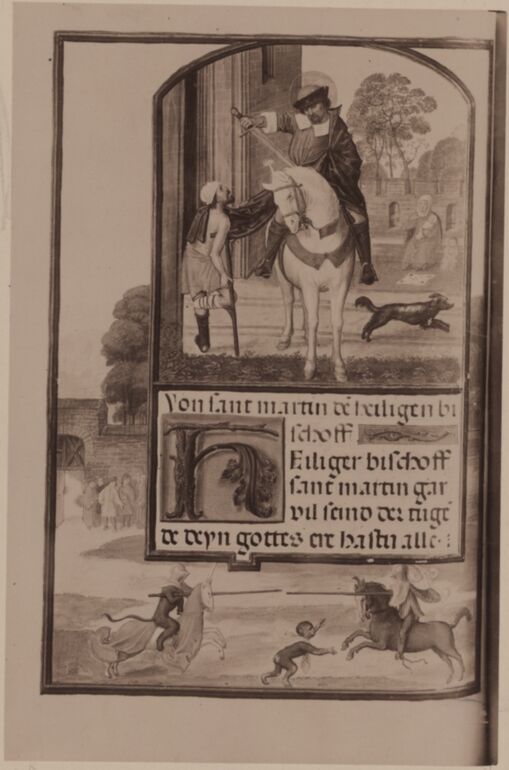 Von sant martin dē heiligen bi
schoff
Heiliger bischoff
sant martin gar
vil seind der tugē
de deyn gottes ere hastu alle·: